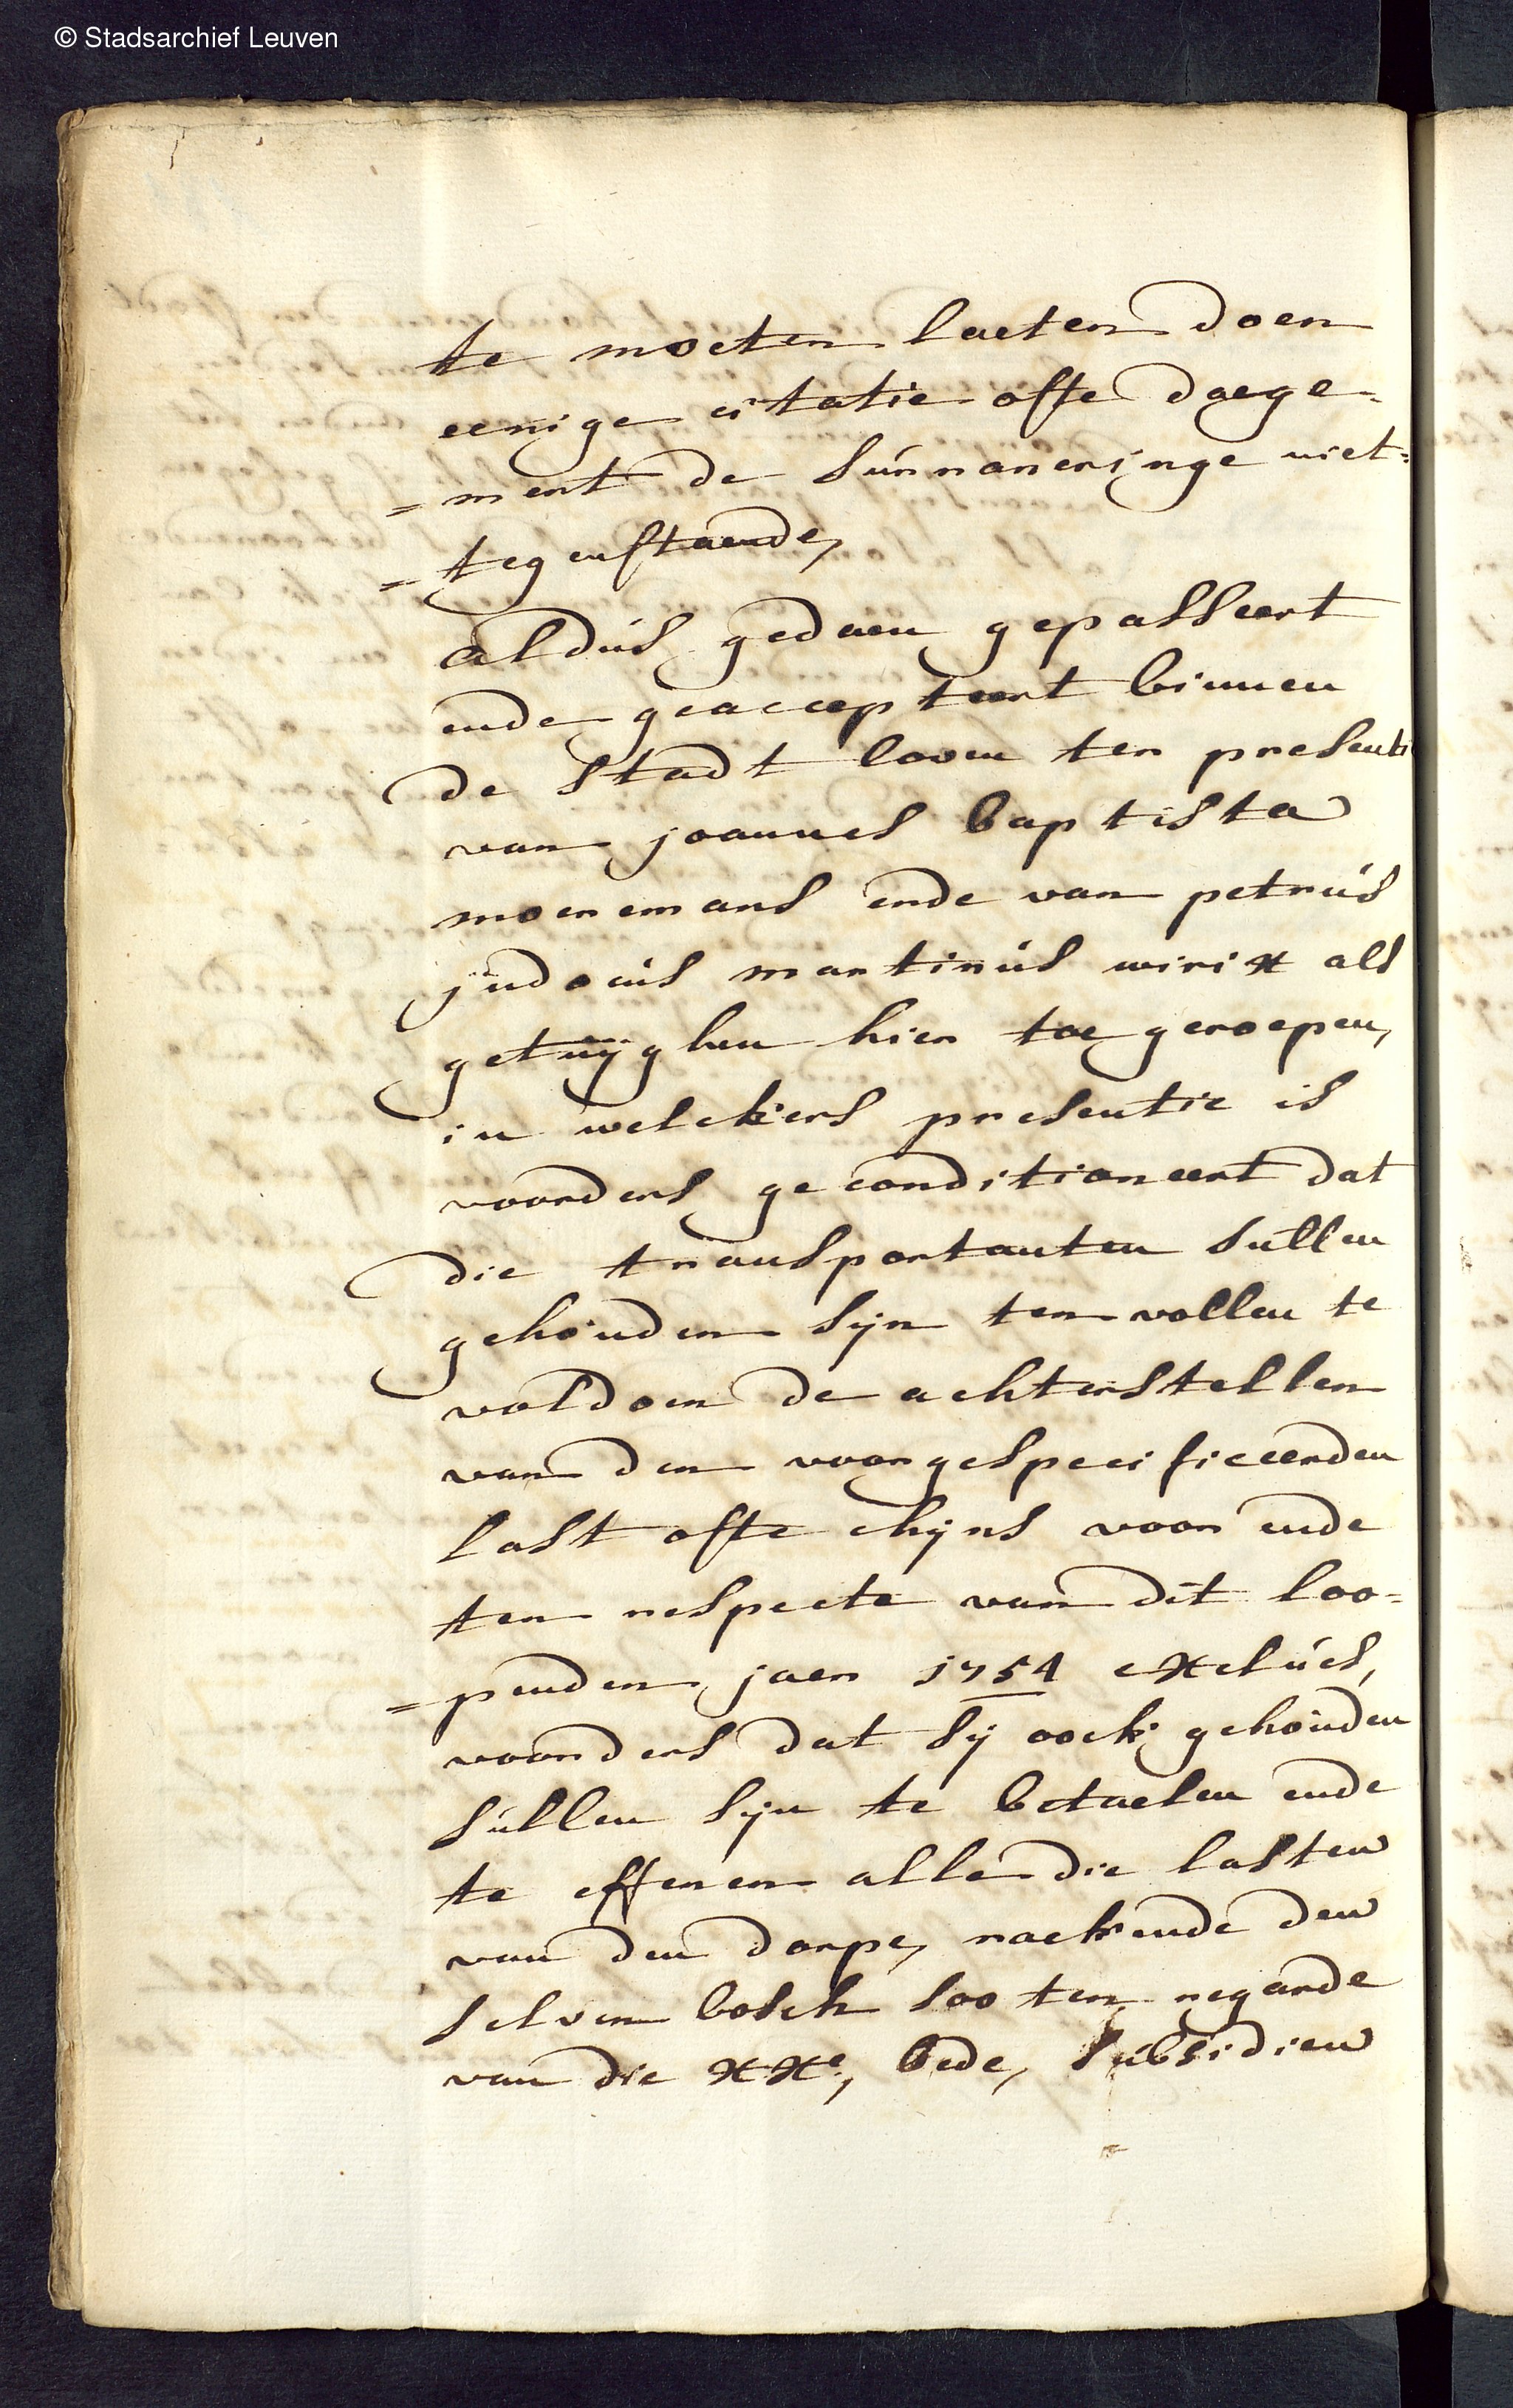 © Stadsarchief Leuven
te moeten laeten doen
eenige citatie ofte daege-
=ment de surrnaneringe niet=
=tegenstaende,
aldus gedaen gepasseert
ende geaccepteert binnen
de stadt loven ter presenti
van joannes baptista
moeremans ende van petrus
judocus martinus wirix als
getuÿghen hier toe geroepen,
in welckers presentie is
voorders geconditioneert dat
die transportanten sullen
gehouden sijn ten vollen te
voldoen de achterstellen
van den voorgespecificeerden
last ofte chijns voor ende
ten respecte van dit loo=
=penden jaer 1754 exclües,
voorders dat sij oock gehouden
sullen sijn te betaelen ende
te effenen alle die lasten
van den dorpe, raekende den
selven bosch soo ten regarde
van die xxe, bede, subsidien